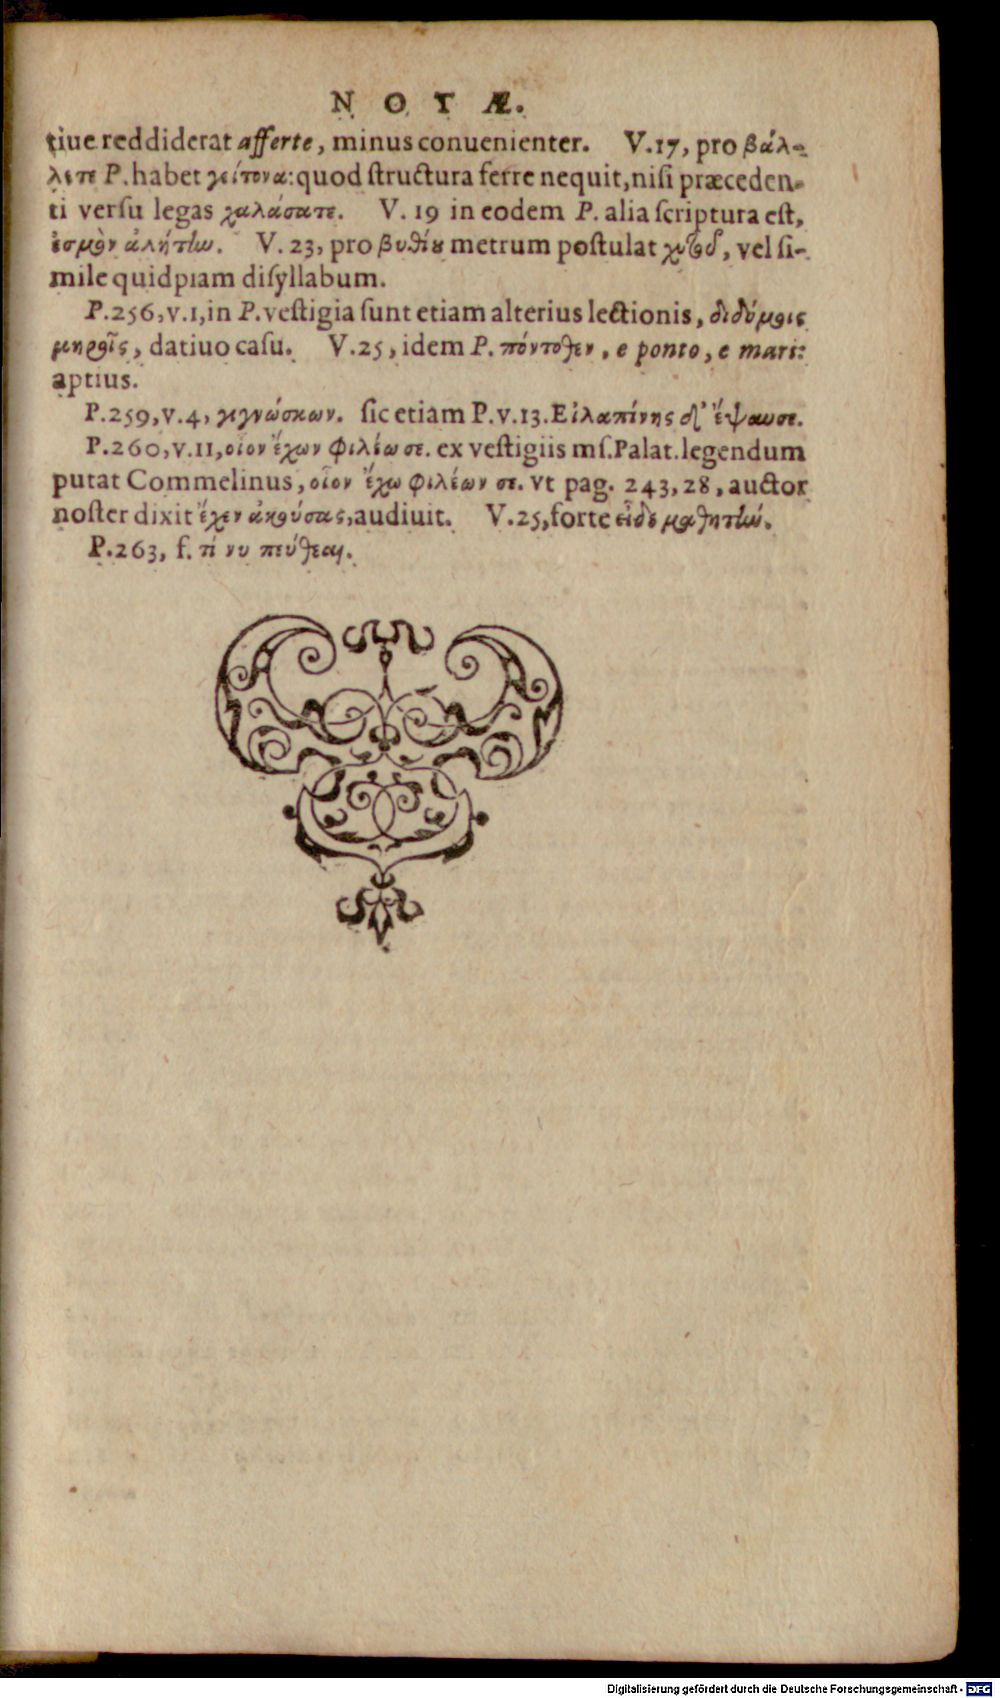 NOTÆ.
tiue reddiderat afferte, minus conuenienter. V.17, pro βάλ-
λετε P. habet γείτονα: quod structura ferre nequit, nisi præceden-
ti versu legas χαλάσατε. V. 19 in eodem P. alia scriptura est,
ἑσμὸν ἀλήτην. V. 23, pro βυθίου metrum postulat, vel si-
mile quidpiam disyllabum.
P.256, v.1, in P. vestigia sunt etiam alterius lectionis, διδύμοις
μηροῖς, datiuo casu. V.25, idem P. πόντοθεν, e ponto, e mari:
aptius.
P.259, v.4, γιγνώσκων. sic etiam P. v.13. Εἰλαπίνης δ' ἔψαυσε.
P.260, v.11, οἷον ἔχων φιλέω σε. ex vestigiis ms. Palat. legendum
putat Commelinus, οἷον ἔχω φιλέων σε. vt pag. 243, 28, auctor
noster dixit ἔχεν ἀκούσας, audiuit. V.25, forte εἶδε μαθητήν.
P.263, f. τί νυ πεύθεαι.
Digitalisierung gefördert durch die Deutsche Forschungsgemeinschaft - DFG